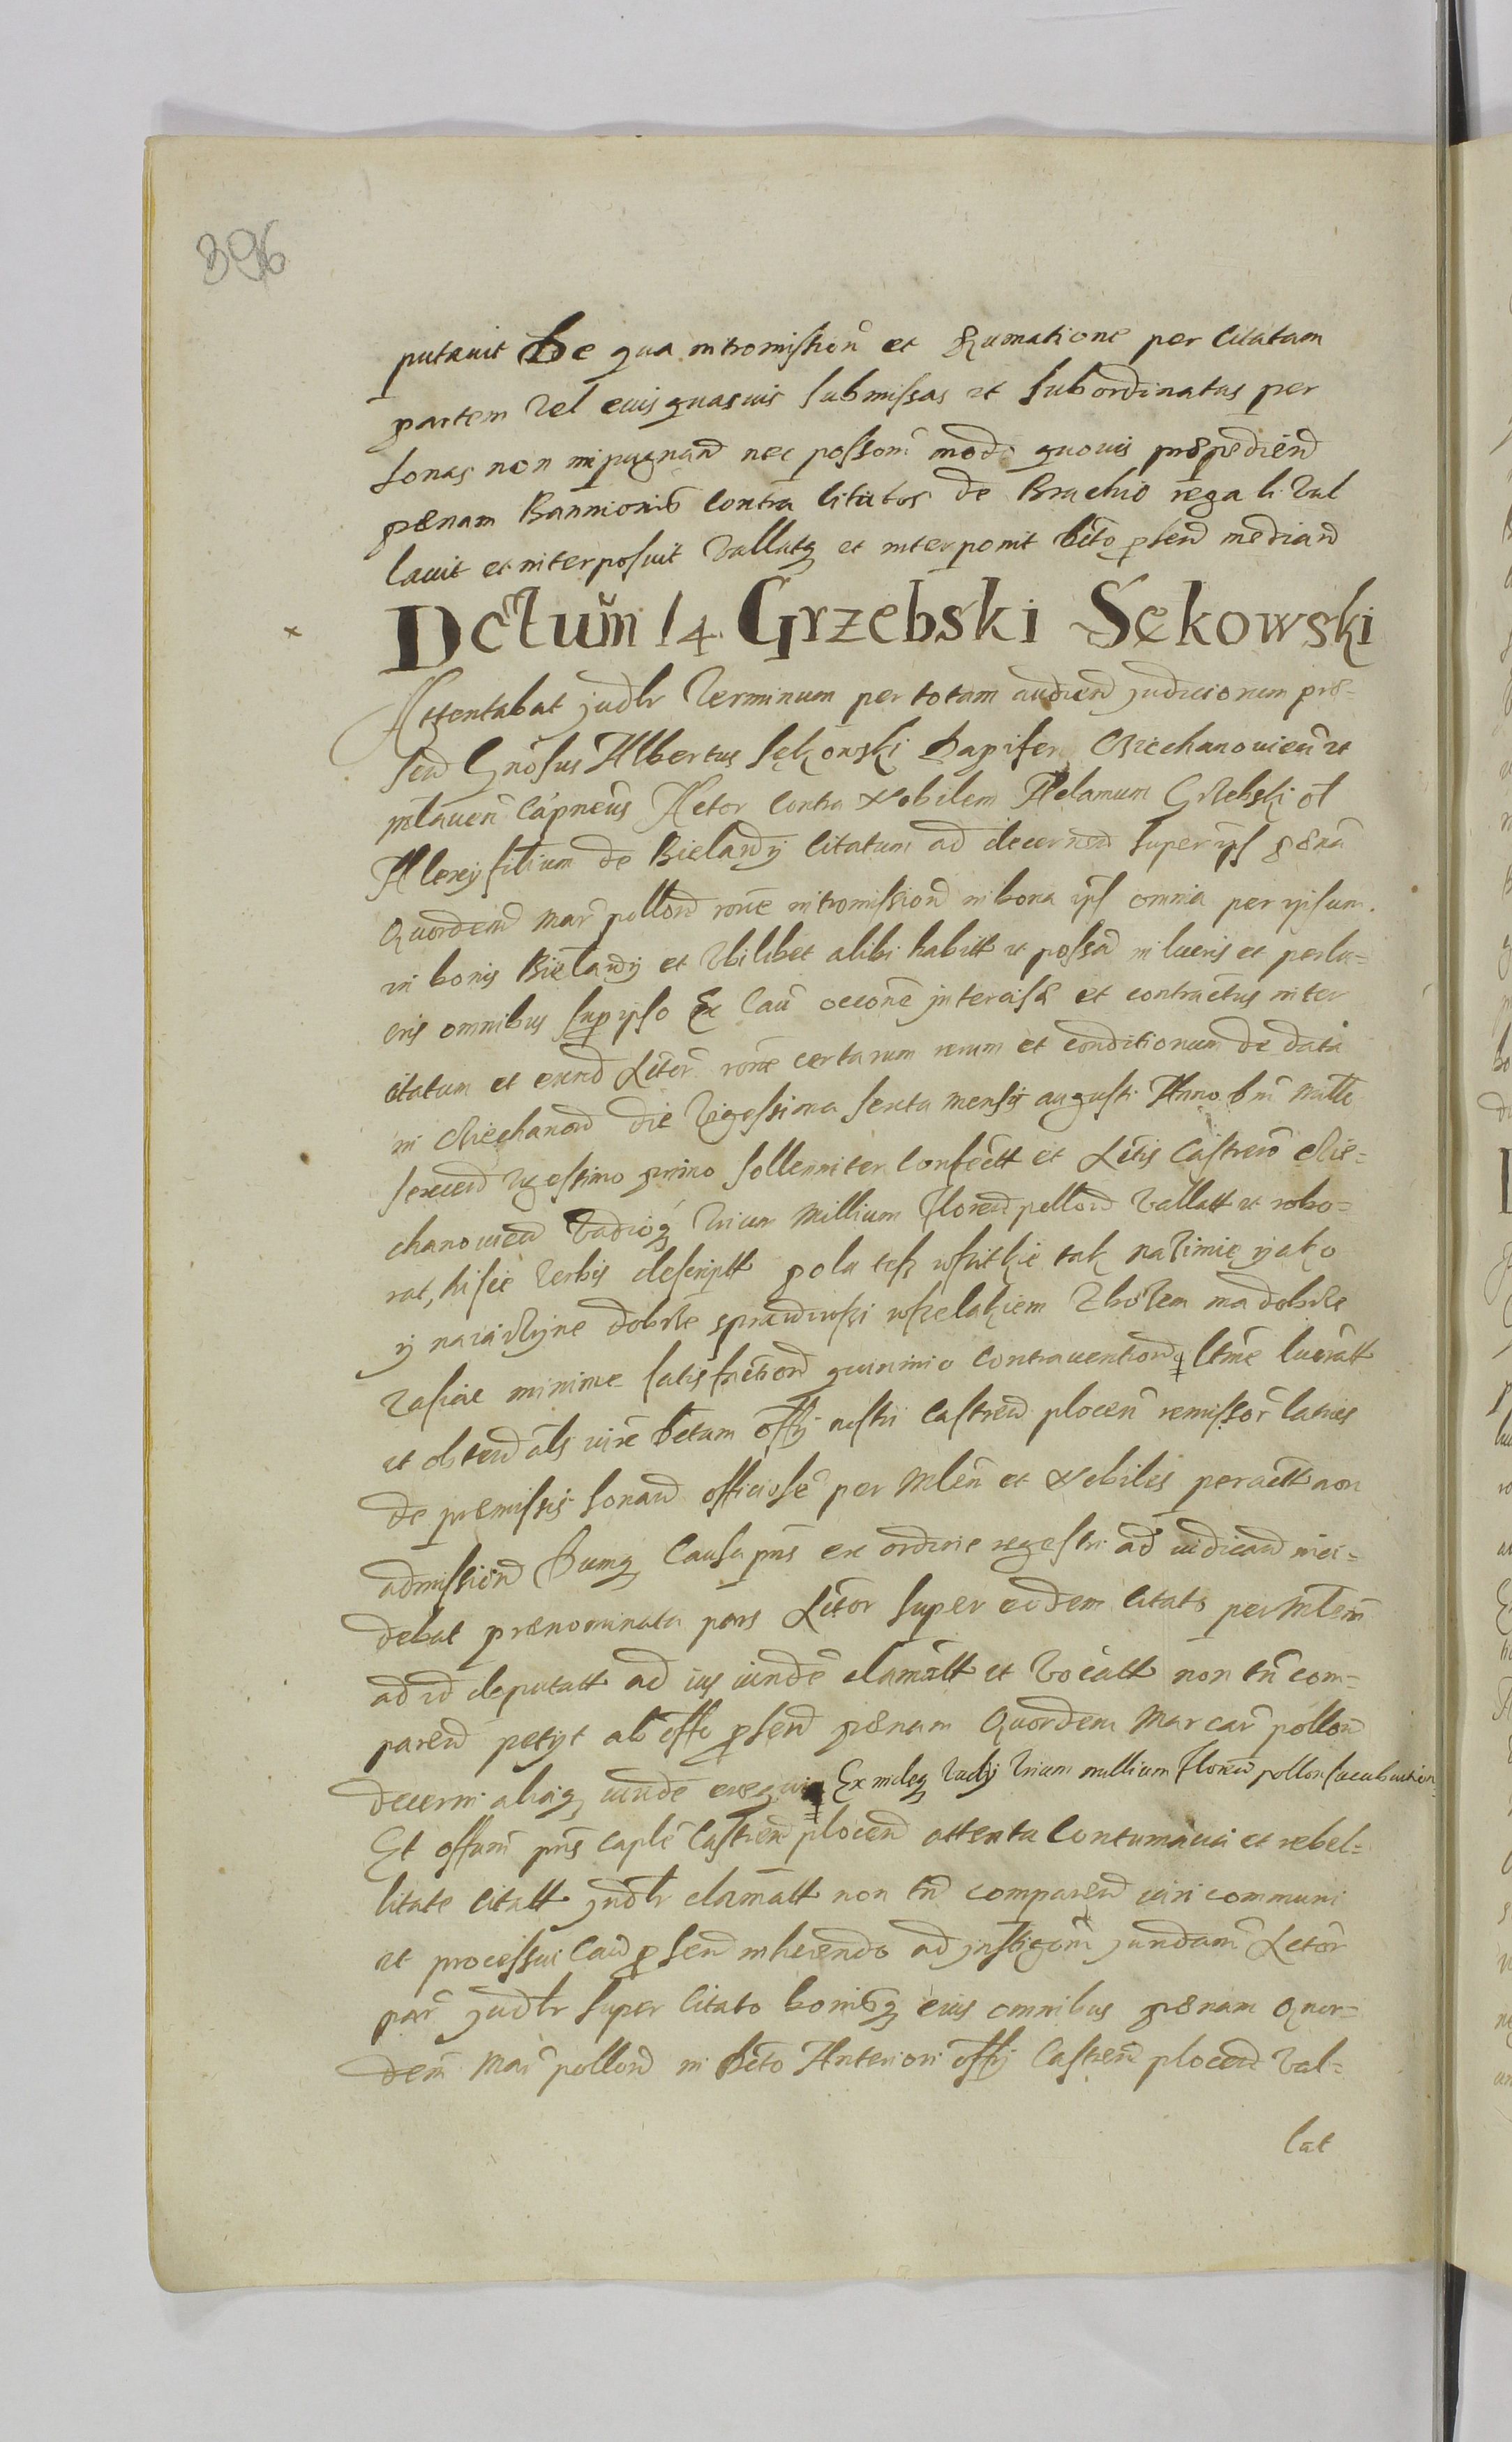 396
putauit De qua intromission et Firmatione per Citatam
partem Vel eius quasuis submissas et subordinatas per
sonas non impugnand nec possorm modo quouis præpediend
pænam Bannionis Contra Citatos de Brachio regali Val
lauit et interposuit Vallatq et interponit Dcto pssend mediand
Dctum 14 Grzebski Sękowski
Attentabat judlr Terminum per totam audiend judiciorum præ=
sen Gnosus Albertus Sękowski Dapifer Ciechanouien et
mlauen Capneus Actor Contra Nobilem Adamum Grzebski ol
Alexij filium de Bielawÿ Citatum ad decernend super ips pænā
Quordem mar pollon rone intromission in bona ips omnia per ipsum
in bonis Bielawÿ et Vbilibet alibi habitt et possa in lucris et perlu=
cris omnibus sup ipso Ex Cau occone intercisæ et contractus inter
citatum et eund Actor rone certarum rerum et conditionum de data
in Ciechanow die Vigessima sexta mensis augusti Anno Dni mille
sexcen Vigessimo primo sollenniter Confectt et Actis Castren Cie=
chanouien Vadioq Trium Millium Floren pollon Vallatt et robo=
rat, hisce Verbis descriptt pola tesz wszitkie tak na zimię ÿako
ÿ na iarzÿne dobrze sprawiwszi wszelakiem Zbozem ma dobrze
Zasiac minime satisfaction quinimo Contrauention ltme lucratt
et obten als iure Dctum offÿ nostri Castren plocen remissor latius
de præmissis sonan officiose per Mlem et Nobiles peractt non
admission Dumq Causa pns ex ordine regestri ad iudicand inci=
debat prænominata pars Actor super eodem citato per Mlem
ad id deputatt ad ius iunde clamatt et Vocatt non tn com=
paren petÿt ab offo pssend pænam Quordem Marcar pollon
decerni aliaq iunde exequi Ex indeq Vadÿ Trium millium Floren pollon succubuition
Et offum pns Caple Castren plocen attenta Contumacia et rebel=
litate citatt judlr clamatt non tn comparen iuri communi
et processui Cau pssend inherendo ad jnstigom jundam Actor
par judlr super Citato bonisq eius omnibus pænam Quor=
dem Mar pollon in Dcto Anteriori offÿ Castren plocen Val=
lat